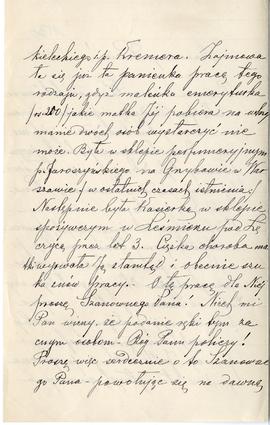 kieleckiego i p. Kremera. Zajmowa
ła się już ta panienka pracą tego
rodzaju, gdyż maleńka emeryturka
jaką matka Jej pobiera na utrzy
manie dwóch osób wystarczyć nie
może. Była w sklepie perfumeryjnym
p. Jaroszyńskiego na Grzybowie w War
szawie w ostatnich czasach istnienia.
Następnie była Kasjerką w sklepie
spożywczym w Leśmierzu pod Łę
czycą przez lat 3. Ciężka choroba ma
tki wyrwała Ją stamtąd i obecnie szu
ka znów pracy. O tę pracę dla Niej
proszę Szanownego Pana! Niech mi
Pan wierzy, że podanie ręki tym za
cnym osobom - Bóg Panu policzy!
Proszę więc serdecznie o to Szanowne
go Pana - powołując się na dawne,